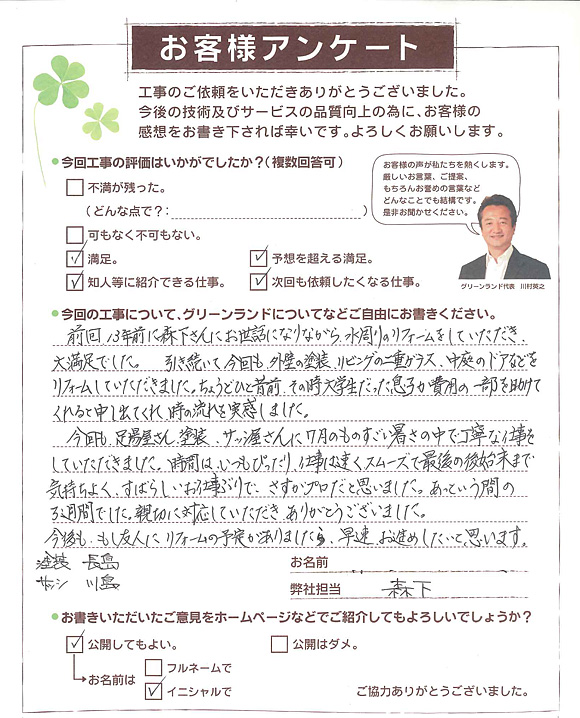 お客様アンケート
工事のご依頼をいただきありがとうございました。
今後の技術及びサービスの品質向上の為に、お客様の
感想をお書き下されば幸いです。よろしくお願いします。
●今回工事の評価はいかがでしたか?(複数回答可)
不満が残った。
(どんな点で?: )
可もなく不可もない。
満足。
予想を超える満足。
知人等に紹介できる仕事。
次回も依頼したくなる仕事。
お客様の声が私たちを熱くします。
厳しいお言葉、ご提案、
もちろんお誉めの言葉など
どんなことでも結構です。
是非お聞かせください。
グリーンランド代表 川村英之
●今回の工事について、グリーンランドについてなどご自由にお書きください。
前回 13年前に森下さんにお世話になりながら、水周りのリフォームをしていただき、
大満足でした。 引き続いて今回も、外壁の塗装、リビングの二重ガラス、中庭のドアなどを
リフォームしていただきました。ちょうどひと昔前、その時大学生だった息子が費用の一部を助けて
くれると申し出てくれ、時の流れを実感しました。
今回も、足場屋さん、塗装、サッシ屋さんに7月のものすごい暑さの中で丁寧な仕事を
していただきました。時間は、いつもぴったり、仕事は速くスムーズで最後の後始末まで
気持ちよく、すばらしいお仕事ぶりで、さすがプロだと思いました。あっという間の
3週間でした。親切に対応していただき ありがとうございました。
今後も、もし友人に、リフォームの予定がありましたら、早速、お進めしたいと思います。
塗装 長島
サッシ 川島
お名前
弊社担当 森下
●お書きいただいたご意見をホームページなどでご紹介してもよろしいでしょうか?
公開してもよい。
公開はダメ。
お名前は
フルネームで
イニシャルで
ご協力ありがとうございました。